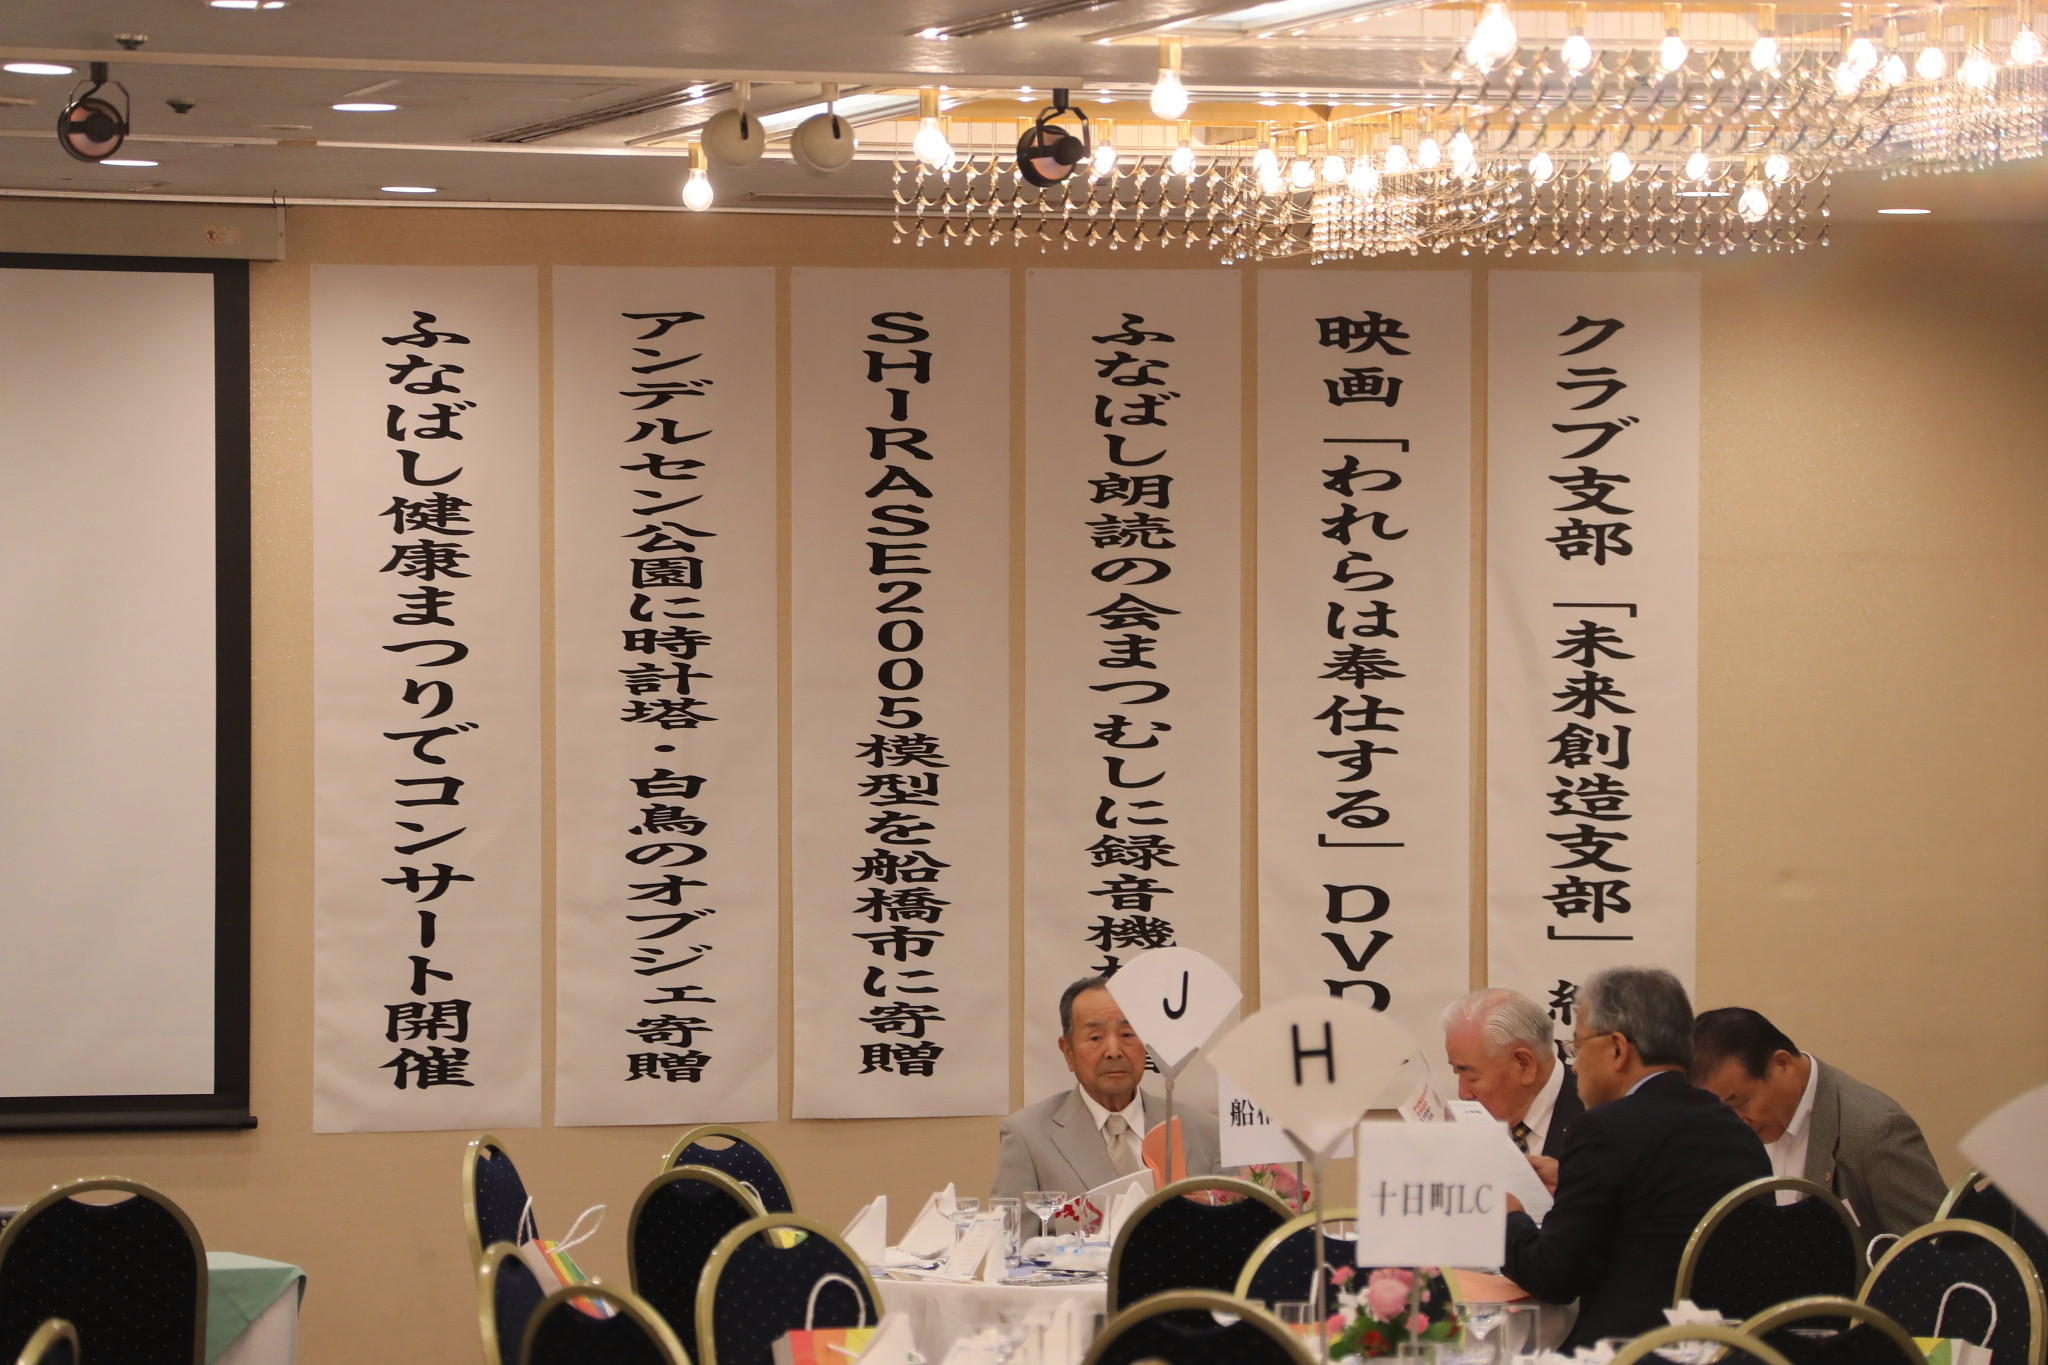 クラブ支部「未来創造支部」
映画「われらは奉仕する」DVD
ふなばし朗読の会まつむしに録音機
SHIRASE2005模型を船橋市に寄贈
アンデルセン公園に時計塔・白鳥のオブジェ寄贈
ふなばし健康まつりでコンサート開催
J
H
船
十日町LC